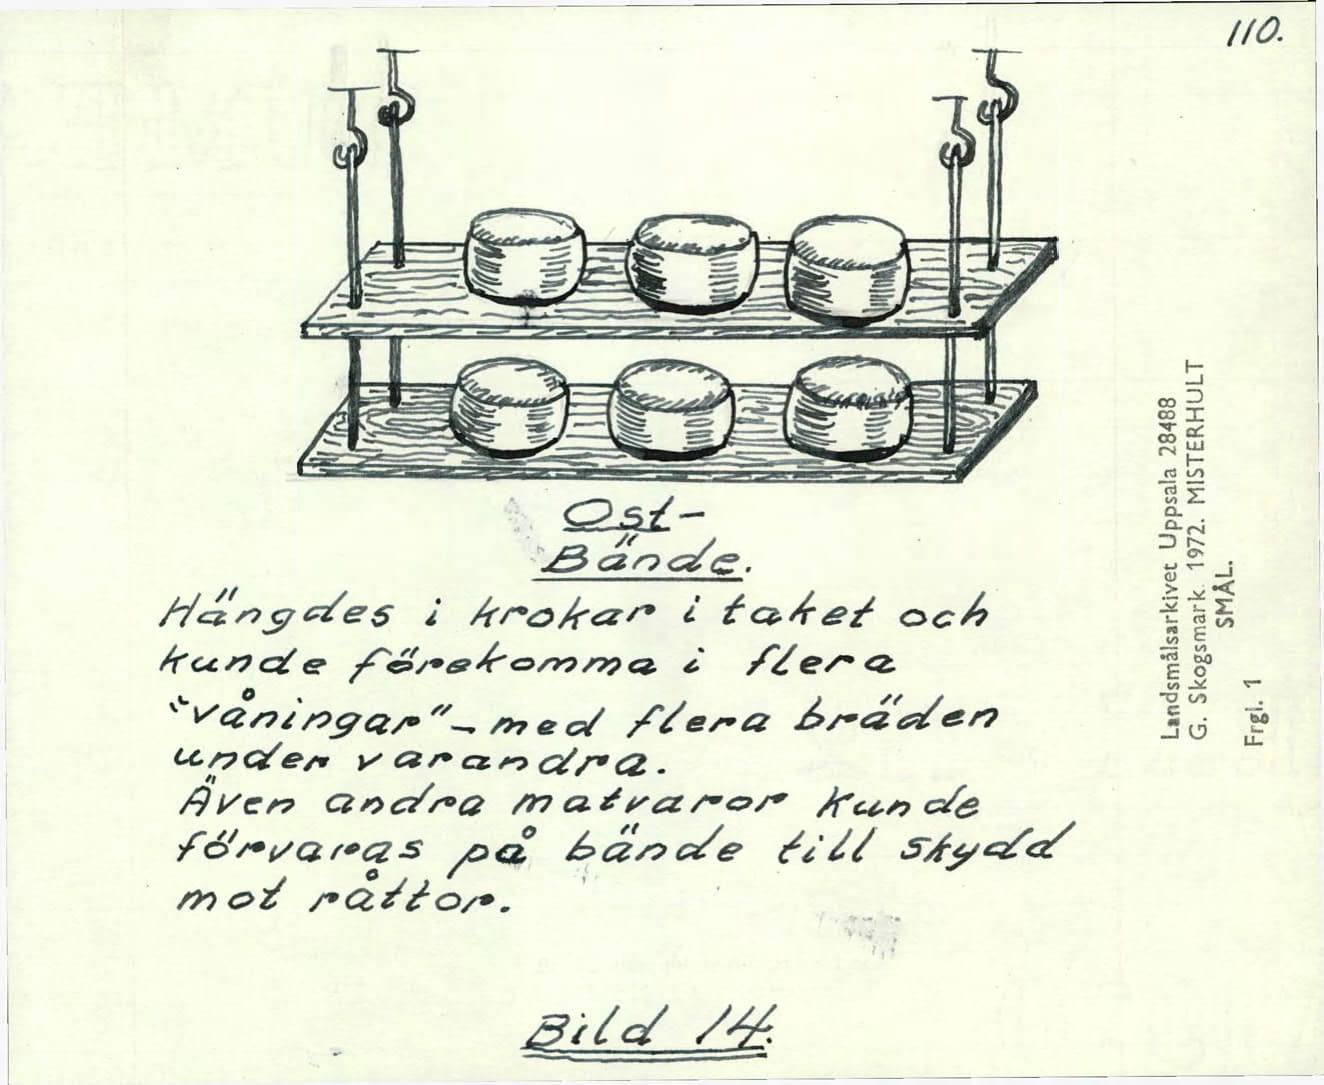 110.
Ost-
Bände.
Hängdes i krokar i taket och
kunde förekomma i flera
"våningar" - med flera bräden
under varandra.
Även andra matvaror kunde
förvaras på bände till skydd
mot råttor.
Bild 14.
Landsmålsarkivet Uppsala 28488
G. Skogsmark. 1972. MISTERHULT
SMÅL.
Frgl. 1